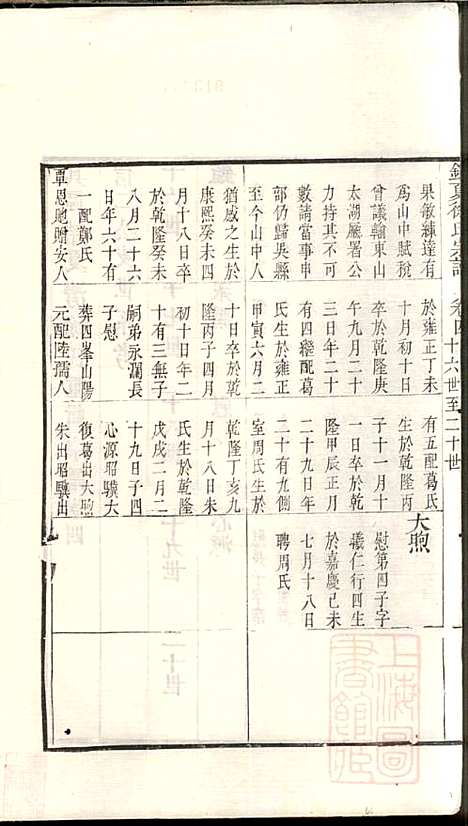 徐氏宗譜 卷四 十六世至二十世
果敏練達有
為山中賦稅
曾議翰東山
太湖廳署公
力持其不可
數請當事申
部仍歸吳縣
至今山中人
猶感之生於
康熙癸未四
月十八日卒
於乾隆癸未
八月二十六
日年六十有
一配鄭氏
覃恩貤贈安人
於雍正丁未
十月初十日
卒於乾隆庚
午九月二十
三日年二十
有四繼配葛
氏生於雍正
甲寅六月二
十日卒於乾
隆丙子四月
初十日年二
十有三無子
嗣弟永瀾長
子慰
葬四峯山陽
元配陸孺人
有五配葛氏
生於乾隆丙
子十一月十
一日卒於乾
隆甲辰正月
二十九日年
二十有九側
室周氏生於
乾隆丁亥九
月十八日朱
氏生於乾隆
戊戌二月二
十九日子四
心源昭驥大
復葛出大煦
朱出昭驥出
大煦
慰第四子字
曦仁行四生
於嘉慶己未
七月十八日
聘周氏
上海圖書館藏